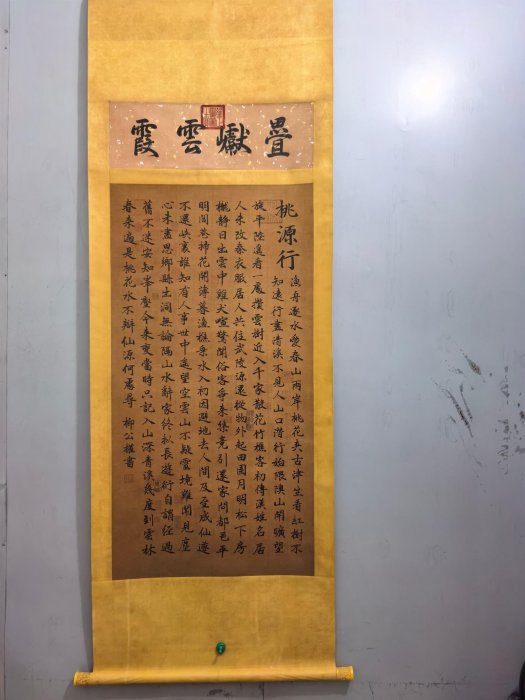 疊巘雲霞
桃源行
漁舟逐水愛春山兩岸桃花夾古津坐看紅樹不
知遠行盡清溪不見人山口潛行始隈隩山開曠望
旋平陸遙看一處攢雲樹近入千家散花竹樵客初傳漢姓名居
人未改秦衣服居人共住武陵源還從物外起田園月明松下房
櫳靜日出雲中雞犬喧驚聞俗客爭來集競引還家問都邑平
明閭巷掃花開薄暮漁樵乘水入初因避地去人間及至成仙遂
不還峽裏誰知有人事世中遙望空雲山不疑靈境難聞見塵
心未盡思鄉縣出洞無論隔山水辭家終拟長遊衍自謂經過
舊不迷安知峰壑今來變當時只記入山深青溪幾度到雲林
春來遍是桃花水不辨仙源何處尋 柳公權書